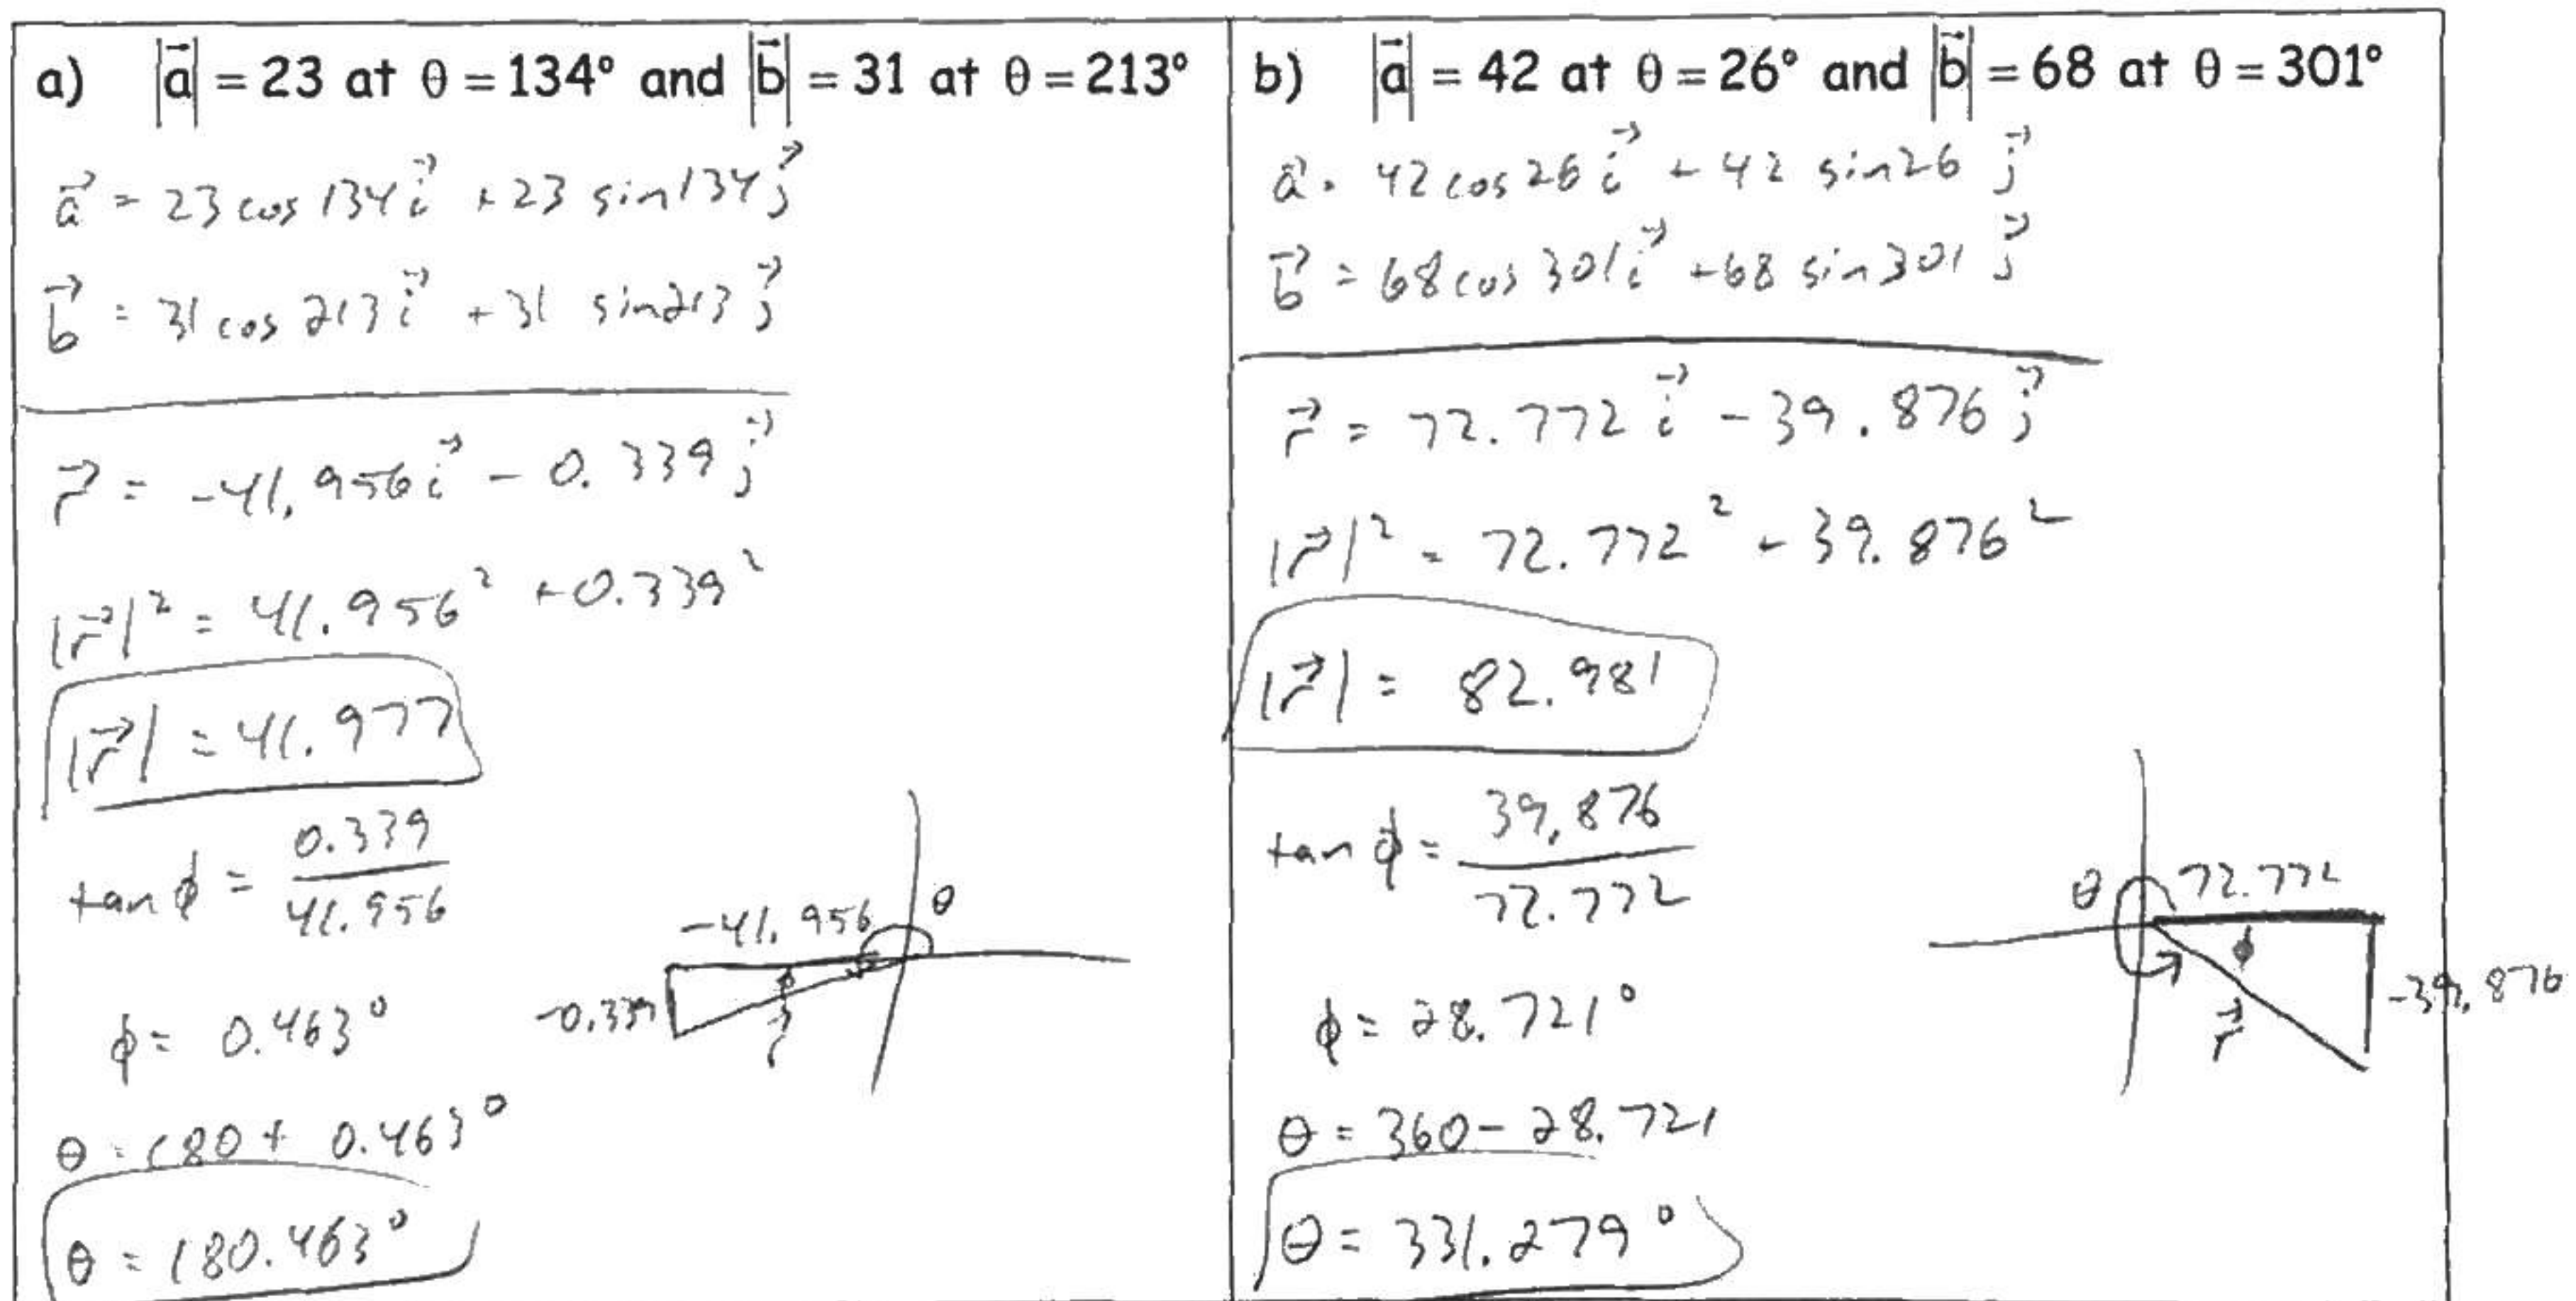 a) |a⃗| = 23 at θ = 134° and |b⃗| = 31 at θ = 213°
a⃗ = 23 cos 134 i⃗ + 23 sin 134 j⃗
b⃗ = 31 cos 213 i⃗ + 31 sin 213 j⃗
r⃗ = -41.956 i⃗ - 0.339 j⃗
|r⃗|² = 41.956² + 0.339²
|r⃗| = 41.977
tan ϕ = 0.339 / 41.956
ϕ = 0.463°
θ = 180 + 0.463°
θ = 180.463°
-41.956
θ
-0.339
ϕ
r⃗
b) |a⃗| = 42 at θ = 26° and |b⃗| = 68 at θ = 301°
a⃗ = 42 cos 26 i⃗ + 42 sin 26 j⃗
b⃗ = 68 cos 301 i⃗ + 68 sin 301 j⃗
r⃗ = 72.772 i⃗ - 39.876 j⃗
|r⃗|² = 72.772² + 39.876²
|r⃗| = 82.981
tan ϕ = 39.876 / 72.772
ϕ = 28.721°
θ = 360 - 28.721
θ = 331.279°
θ
72.772
ϕ
-39.876
r⃗